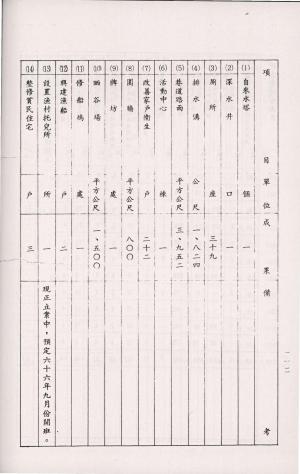 項目 單位 成果 備考
(1) 自來水塔 個 一
(2) 深水井 口 一
(3) 廁所 座 三十九
(4) 排水溝 公尺 一、八二四
(5) 巷道路面 平方公尺 三、九五二
(6) 活動中心 棟 一
(7) 改善家戶衛生 戶 二十二
(8) 圍牆 平方公尺 八〇〇
(9) 牌坊 處 一
(10) 晒谷場 平方公尺 一、五〇〇
(11) 修船塢 處 一
(12) 興建漁船 戶 二
(13) 設置漁村托兒所 所 一 現正立案中，預定六十六年九月份開班。
(14) 整修貧民住宅 戶 三